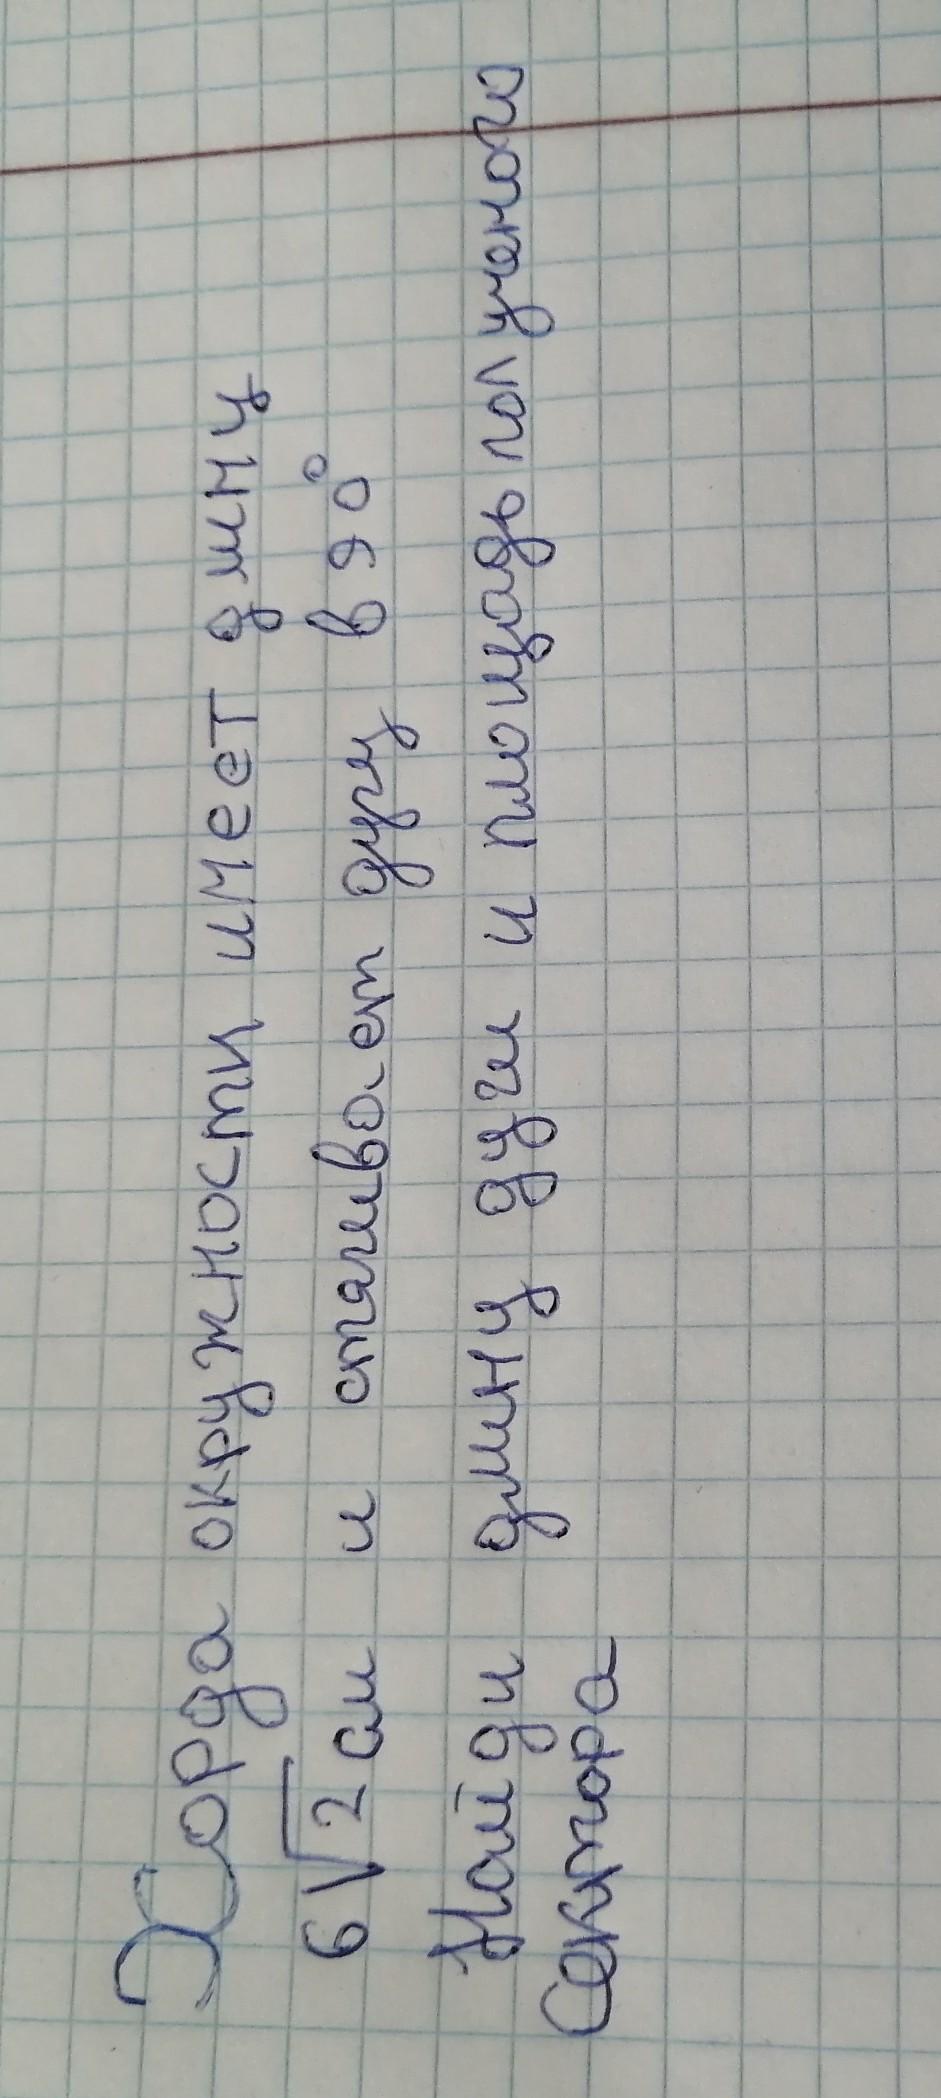 Хорда окружности имеет длину
6√2 см и стягивает дугу в 90°
Найди длину дуги и площадь полученого
Сектора